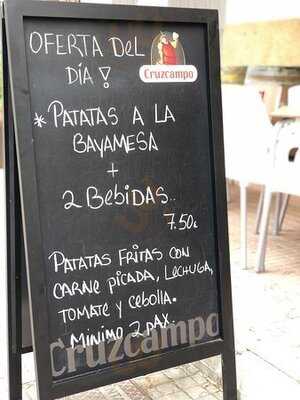 OFERTA DEL
DÍA!
Cruzcampo
* PATATAS A LA
BAYAMESA
+
2 BEBIDAS..
7.50€
PATATAS FRITAS CON
CARNE PICADA, LECHUGA,
TOMATE Y CEBOLLA.
MINIMO 2 PAX.
Cruzcampo